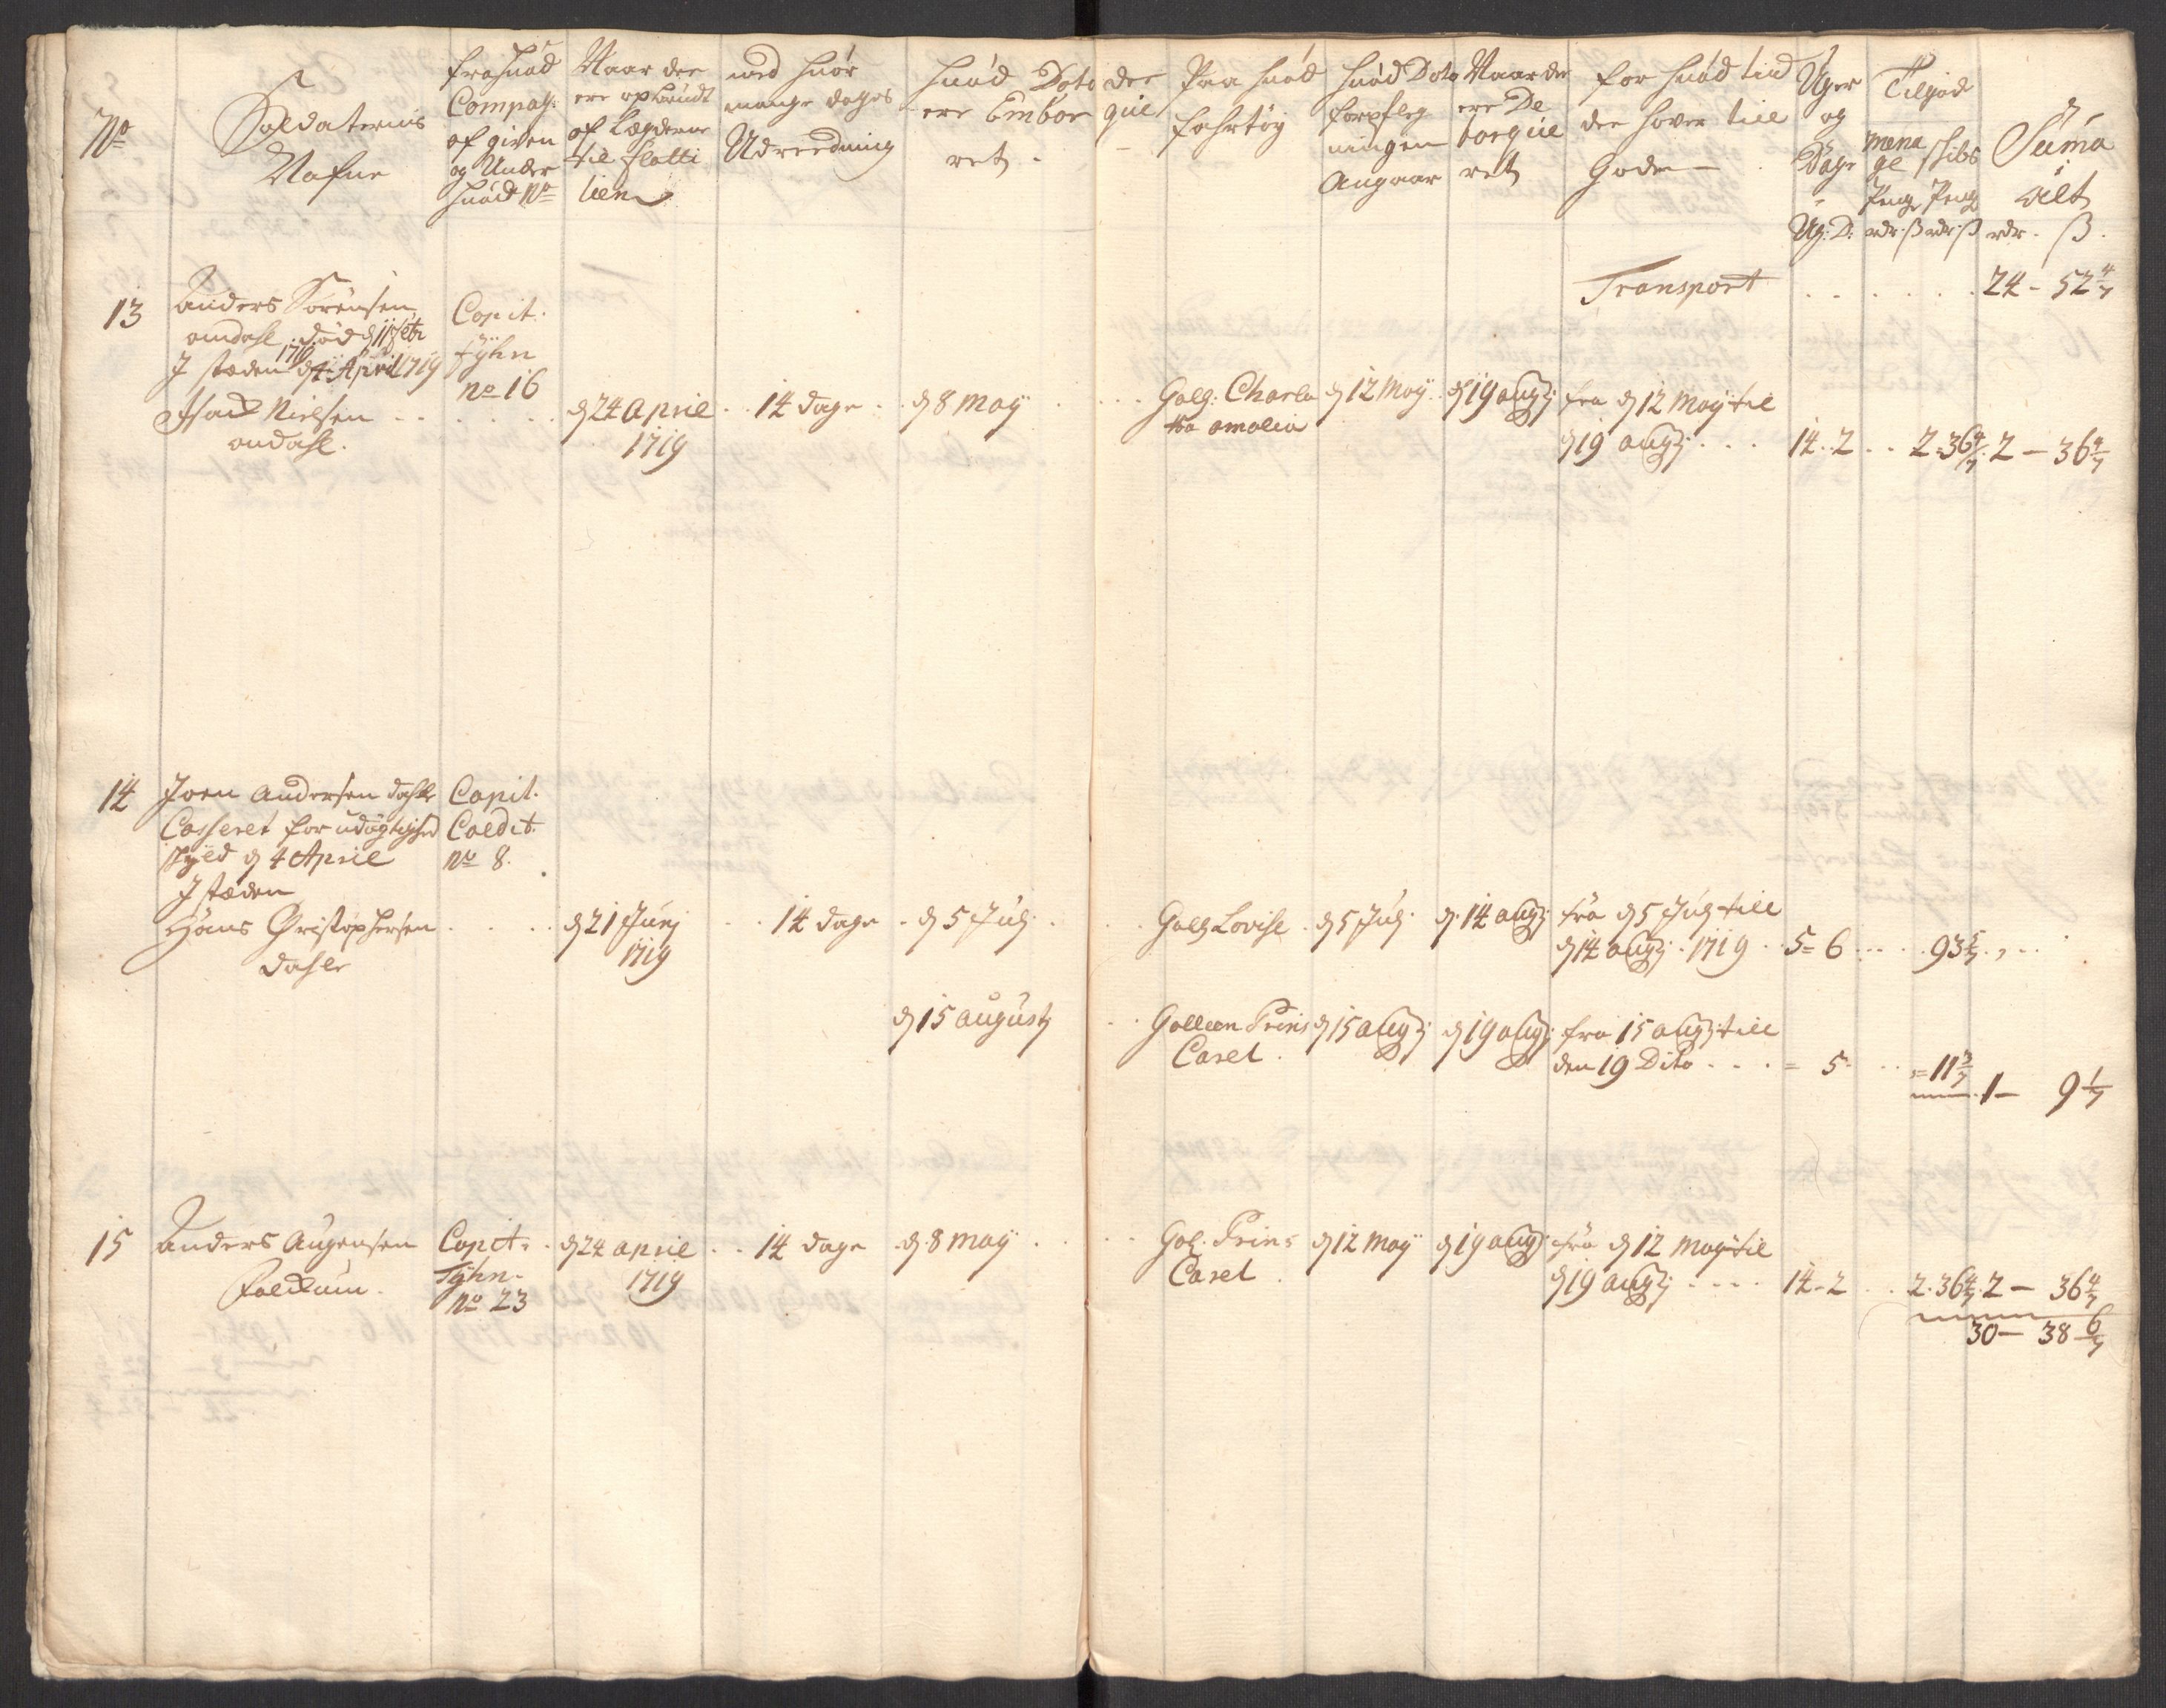 No
Soldaternis
Nafne
fra huad
Compag:
af given
og Under
huad No
Naar dee
ere opbrudt
af Lægderne
til flatti
lien
med huor
mange dages
Udreedning
huad Dato dee
ere Embar que
ret
Paa huad
fahrtøy
huad Dato
forpfleg
ningen
Angaar
Naar de
ere De
barque
ret
for huad tid
dee hawer till
Gode
Uger
og
Dage
Ug: D:
Tilgod
mena
ge
Penge
rdr. ß
schibs
Penge
rdr. ß
Suma
vilt
rdr. ß.
Transport . . . . . . 24 - 52 4/7
13
Anders Sörensen
omdahl död d 11 febr
1719
I stæden d 4 April 1719
Isack Nielsen
omdahl.
Capit.
Tÿhn
no 16
d 24 April
1719
14 dage
d 8 maÿ
Galg: Charlo
tta Amalia
d 12 Maÿ
d 19 augj
fra d 12 Maÿ til
d 19 augj
14. 2
2. 36 4/7
2 - 36 4/7
14
Joen Andersen dahle
Casseret for udögtighed
skyld d 4 April
I stæden
Hans Christophersen
dahle
Capit.
Coldit.
no 8.
d 21 Junj
1719
14 dage
d 5 Julj
Galg Lovise
d 5 Julj
d 14 augj
fra d 5 Julj till
d 14 augj. 1719
5 = 6
93 5/7
d 15 augustj
Galleen Prins
Carel.
d 15 augj
d 19 augj
fra 15 augj till
den 19 Dito
= 5
= 11 3/7
1 - 9 1/7
15
Anders Augensen
Folckum.
Capit.
Tÿhn.
no 23
d 24 april
1719
14 dage
d 8 maÿ
Gal. Prins
Carel
d 12 Maÿ
d 19 augj
fra d 12 Maÿ til
d 19 augj
14 - 2
2. 36 4/7
2 - 36 4/7
30 - 38 6/7